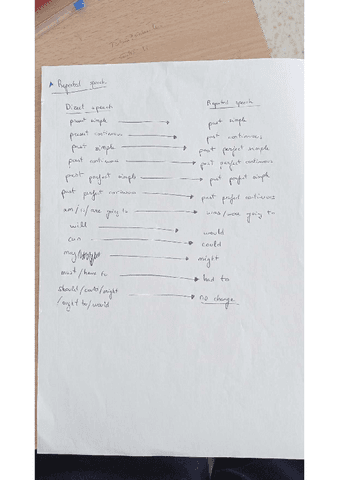 ▸ Reported speech
Direct speech Reported speech
present simple → past simple
present continuous → past continuous
past simple → past perfect simple
past continuous → past perfect continuous
past perfect simple → past perfect simple
past perfect continuous → past perfect continuous
am/is/are going to → was/were going to
will → would
can → could
may → might
must/have to → had to
should/could/might → no change
/ought to/would